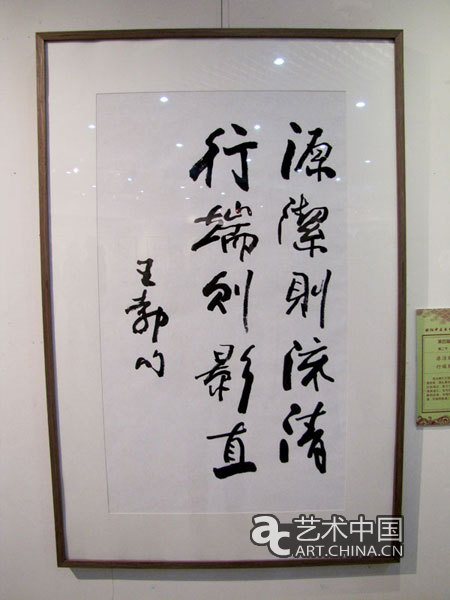 源潔則流清
行端则影直
王勃
艺术中国
ART.CHINA.CN